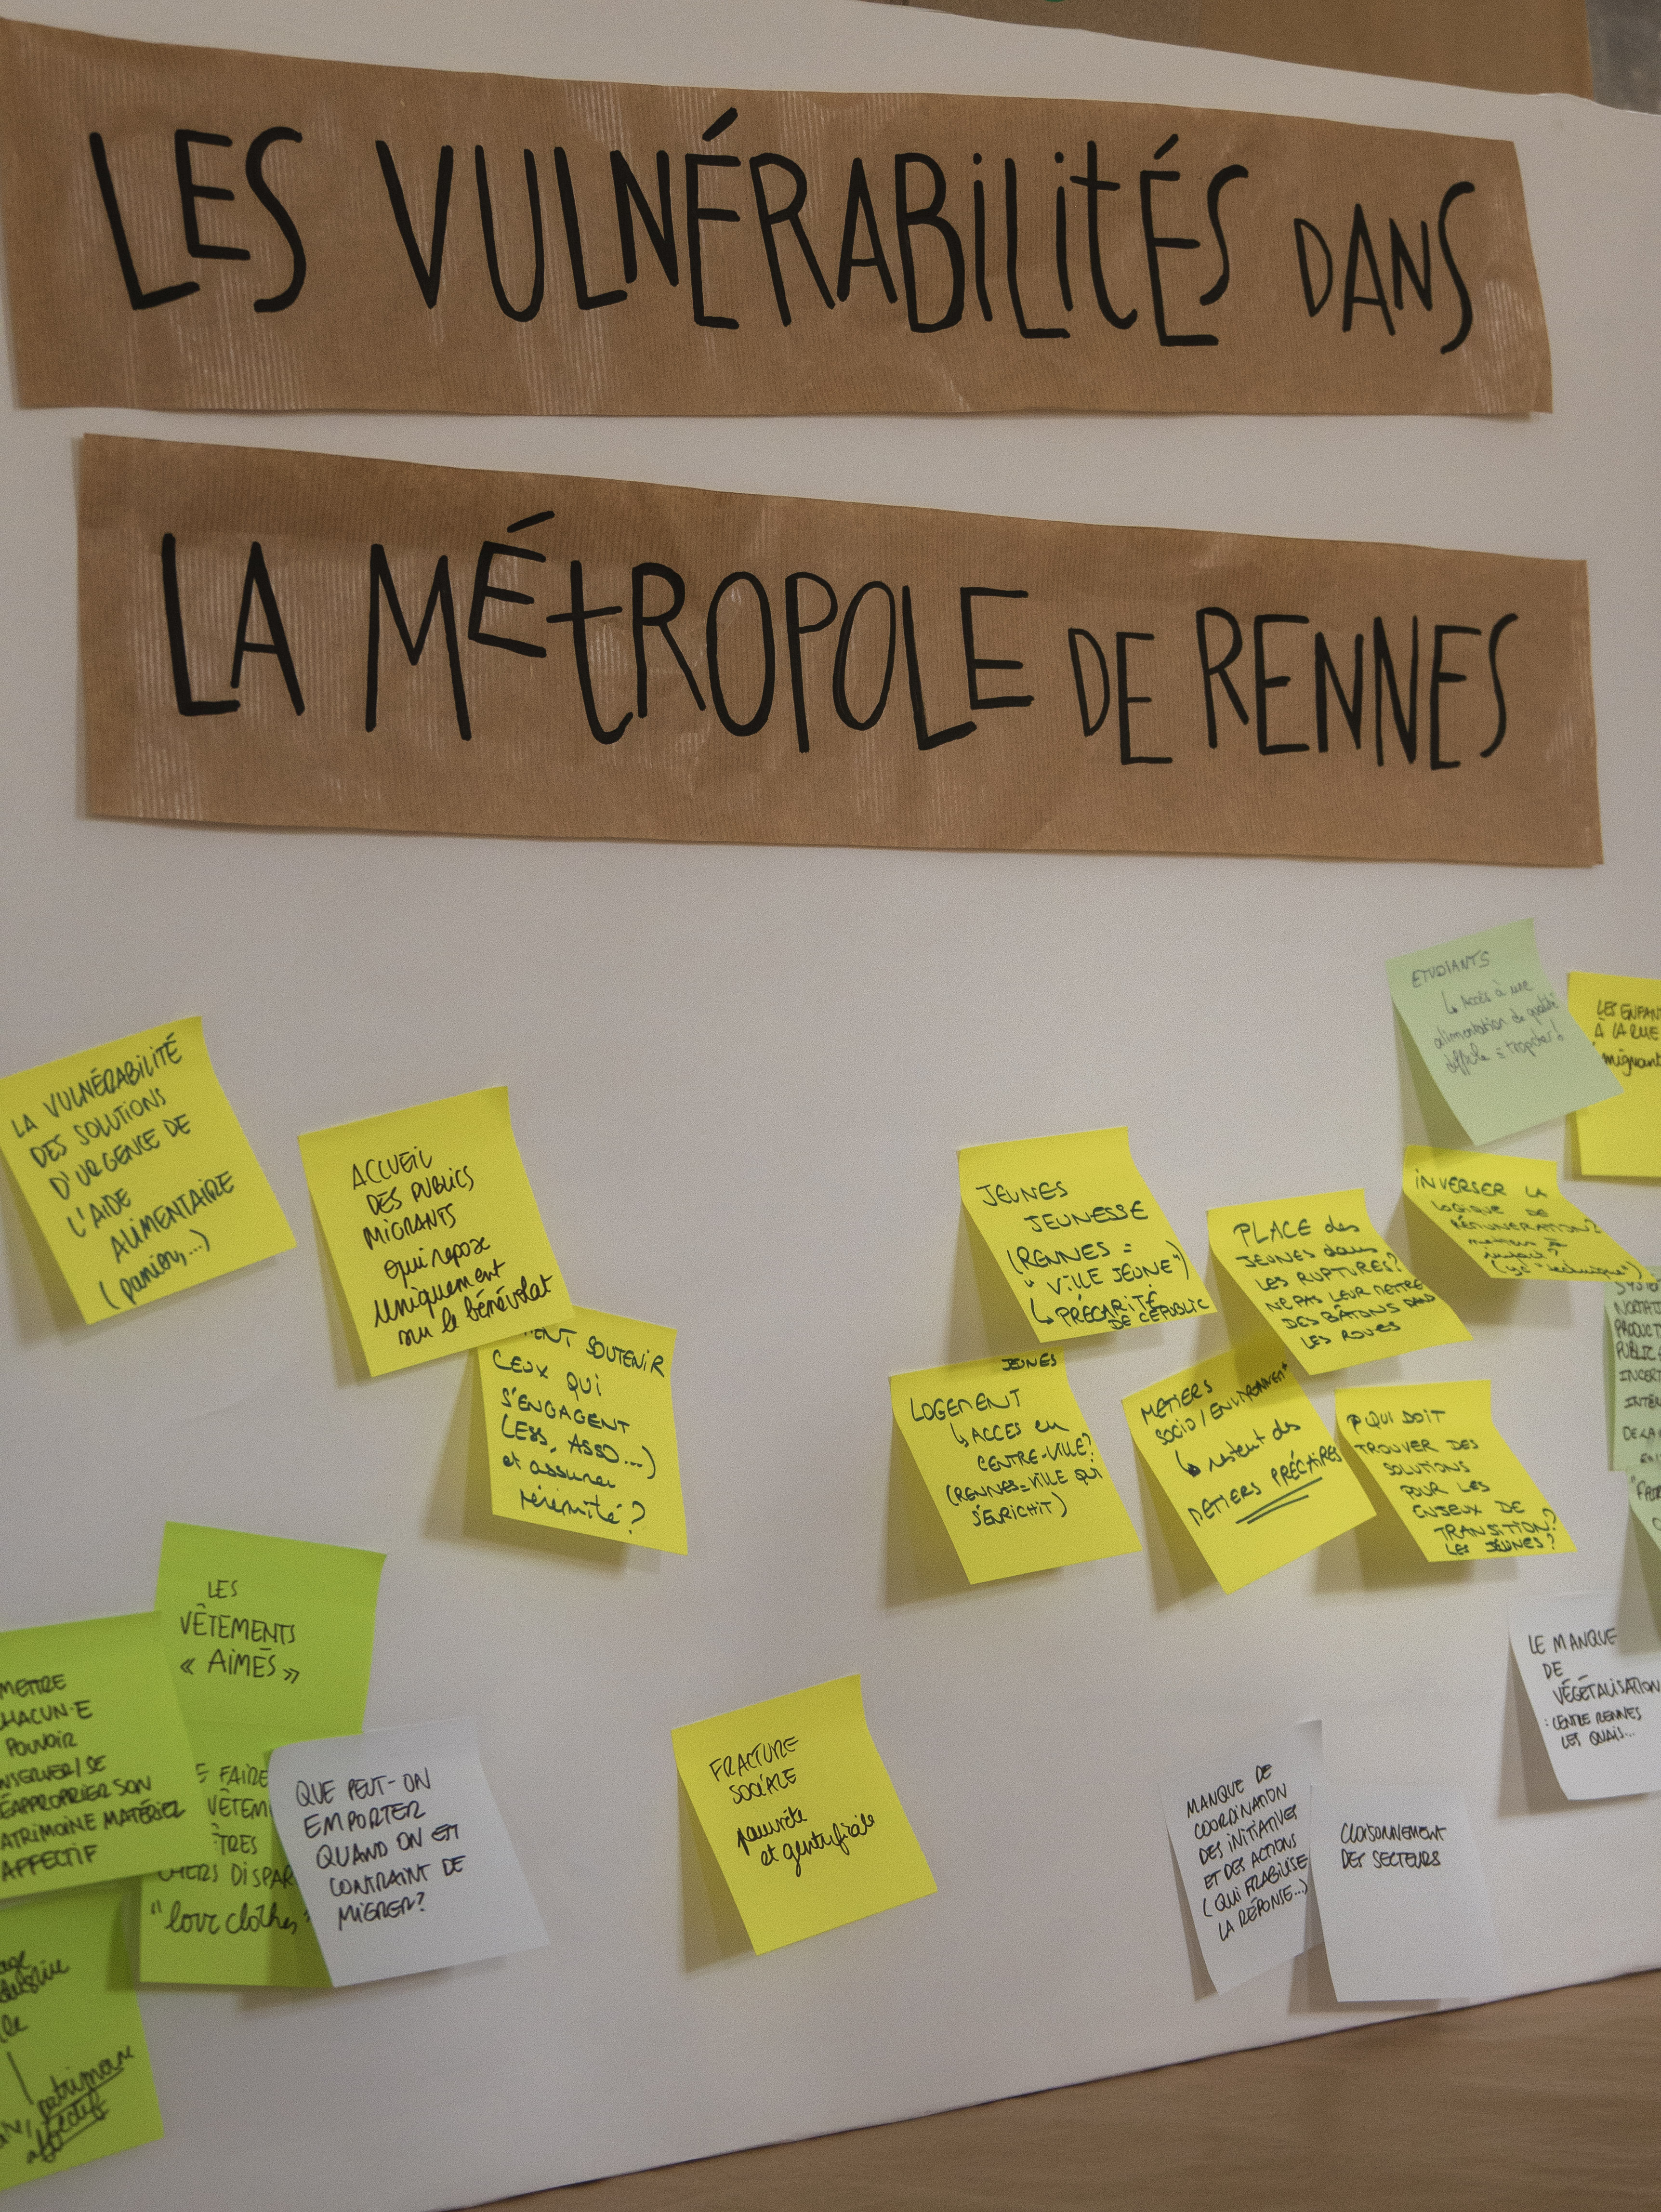 LES VULNÉRABILITÉS DANS
LA MÉTROPOLE DE RENNES
LA VULNÉRABILITÉ
DES SOLUTIONS
D'URGENCE DE
L'AIDE
ALIMENTAIRE
(panier, ...)
ACCUEIL
DES PUBLICS
MIGRANTS
qui repose
uniquement
sur le bénévolat
SOUTENIR
CEUX QUI
S'ENGAGENT
(ESS, ASSO...)
et assurer
pérennité ?
ETUDIANTS
↳ Accès à une
alimentation de qualité
difficile = trop cher!
LES ENFAN
À LA RUE
migrant
JEUNES
JEUNESSE
(RENNES =
"VILLE JEUNE")
↳ PRÉCARITÉ
DE CE PUBLIC
PLACE des
JEUNES dans
LES RUPTURES?
NE PAS LEUR METTRE
DES BÂTONS DANS
LES ROUES
INVERSER LA
LOGIQUE DE
RÉMUNÉRATION?
métiers à
impact?
(vs "technique")
JEUNES
LOGEMENT
↳ ACCES en
CENTRE-VILLE?
(RENNES = VILLE QUI
S'ENRICHIT)
METIERS
SOCIO / ENVIRONNEMENT
↳ restent des
METIERS PRÉCAIRES
QUI DOIT
TROUVER DES
SOLUTIONS
POUR LES
ENJEUX DE
TRANSITION?
LES JEUNES?
PRODUCT
PUBLIC
INCERT
DE LA
LES
VÊTEMENTS
« AIMÉS »
METTRE
HACUN·E
POUVOIR
NSERVER / SE
ÉAPPROPRIER SON
ATRIMOINE MATÉRIEL
AFFECTIF
E FAIRE
VÊTEM
ÊTRES
CHERS DISPAR
"love clothes"
patrimoine
affectif
QUE PEUT-ON
EMPORTER
QUAND ON EST
CONTRAINT DE
MIGRER?
FRACTURE
SOCIALE
pauvreté
et gentrifiée
MANQUE DE
COORDINATION
DES INITIATIVES
ET DES ACTIONS
(QUI FRAGILISE
LA RÉPONSE...)
CLOISONNEMENT
DES SECTEURS
LE MANQUE
DE
VÉGÉTALISATION
: CENTRE RENNES
LES QUAIS...